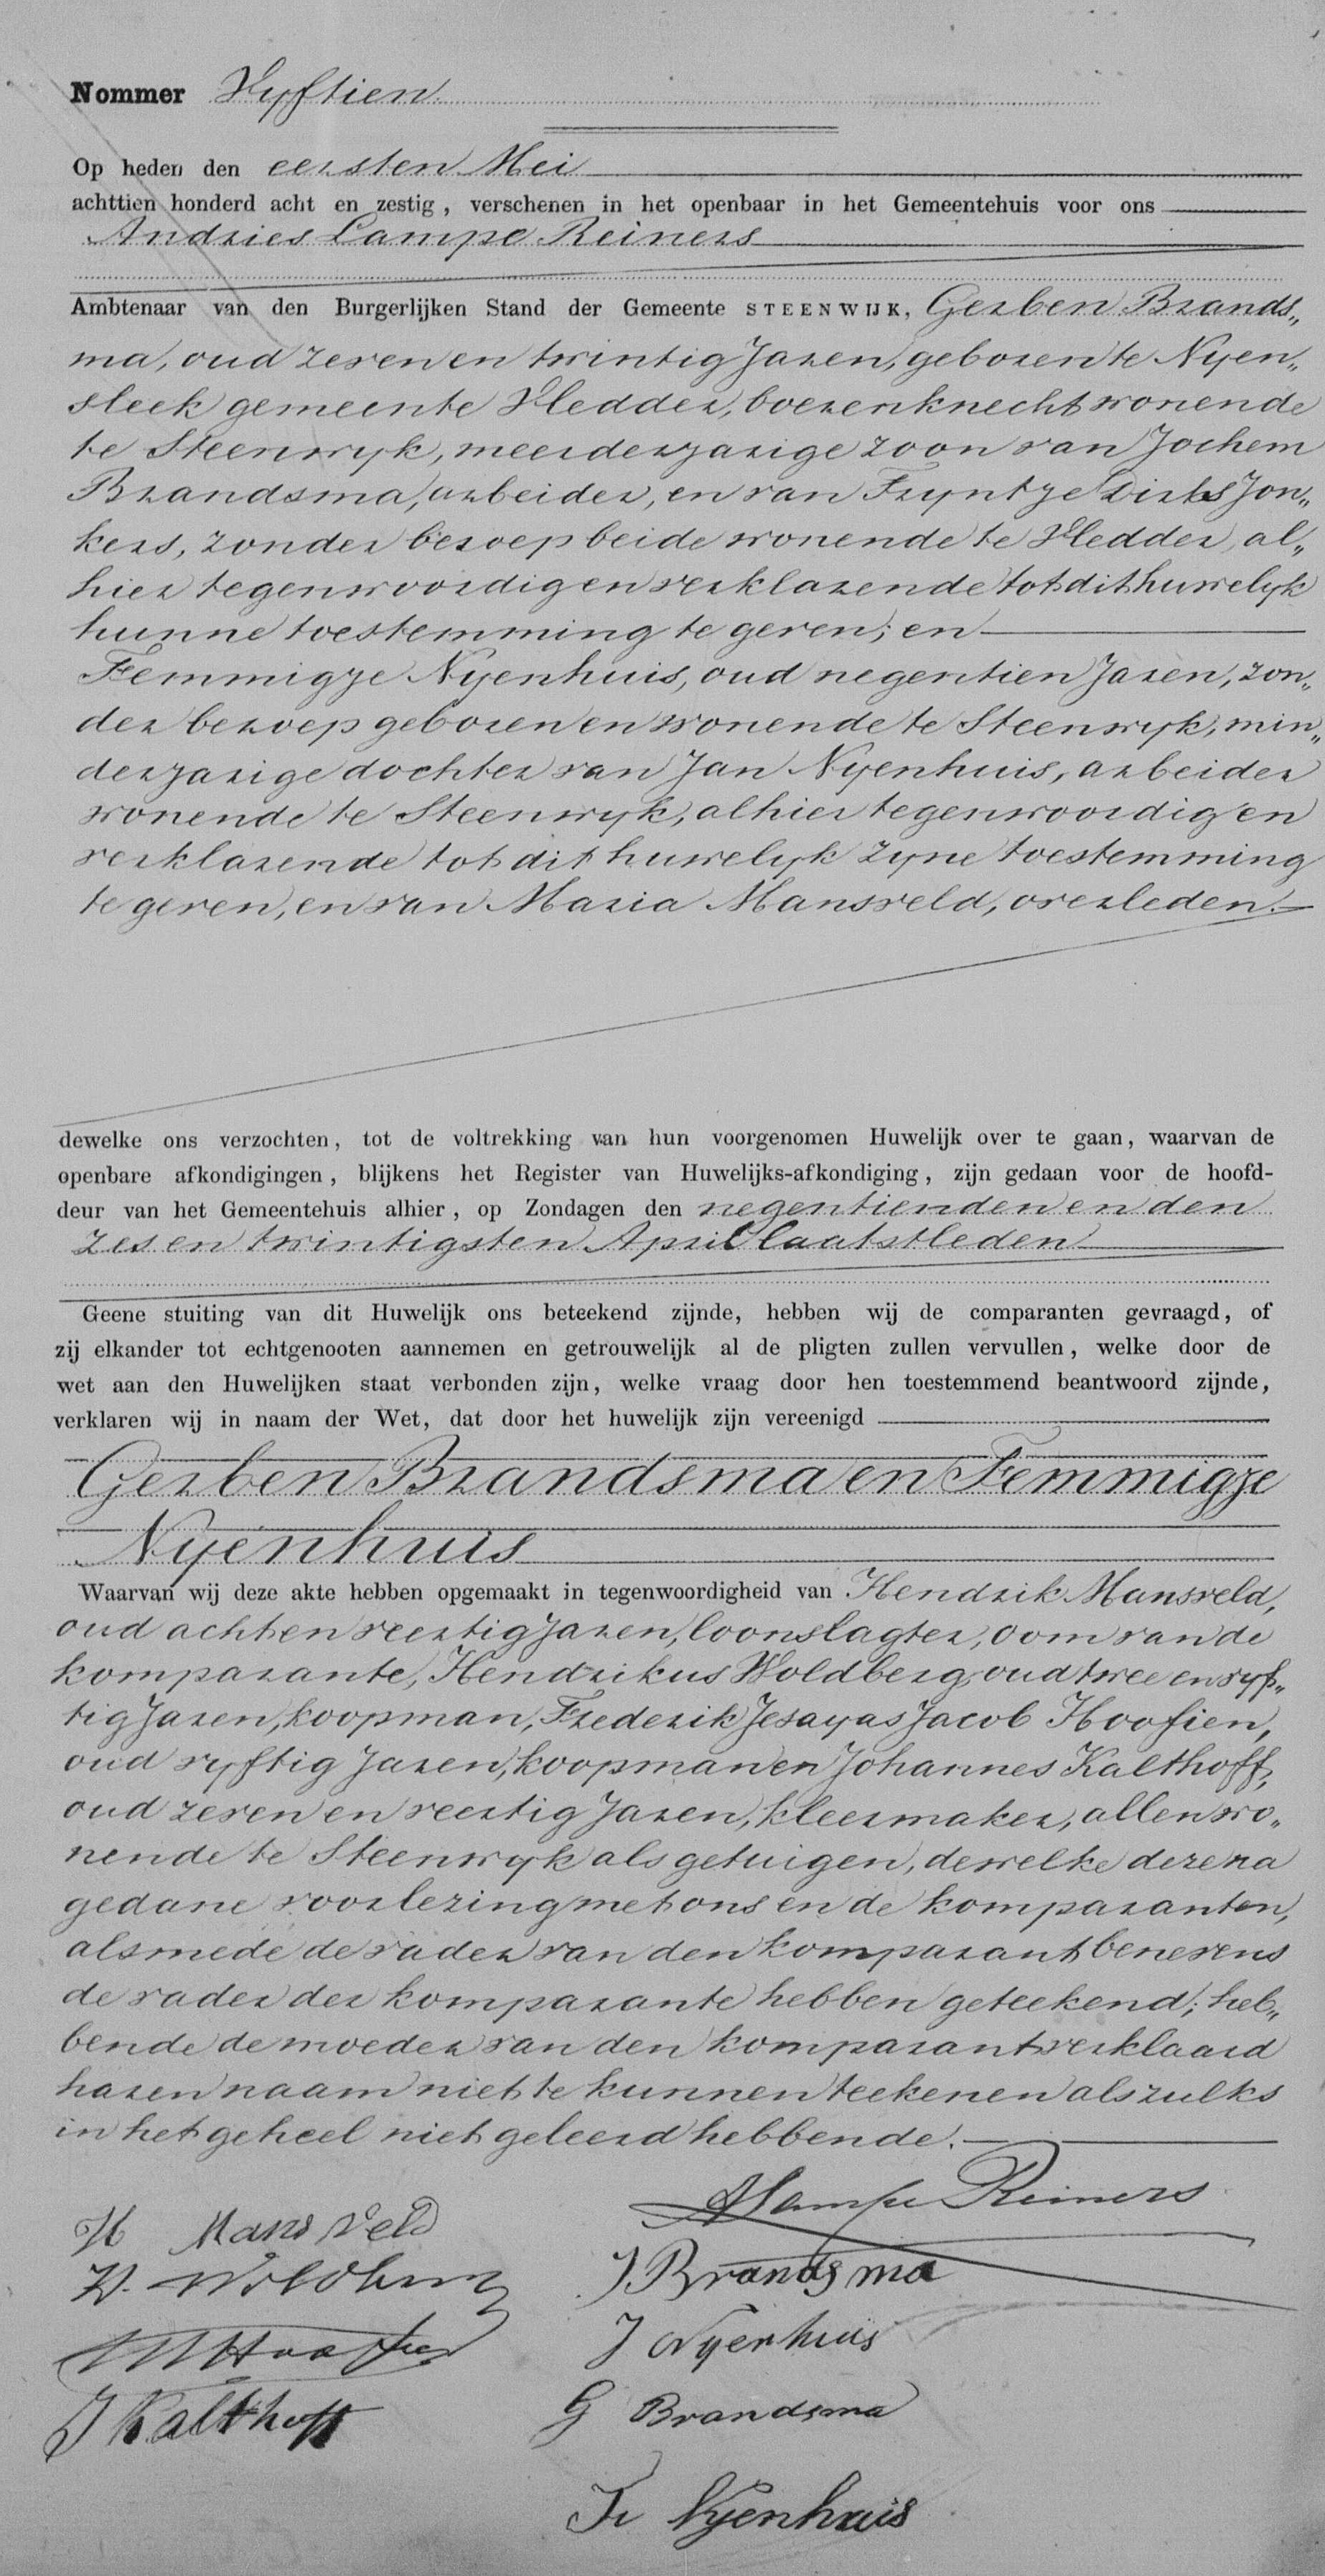 Nommer Vyftien
Op heden den eersten Mei
achttien honderd acht en zestig, verschenen in het openbaar in het Gemeentehuis voor ons
Andries Lampe Reiners
Ambtenaar van den Burgerlijken Stand der Gemeente STEENWIJK, Gerben Brands„
ma, oud zeven en twintig Jaren, geboren te Nyen„
sleek gemeente Vledder, boerenknecht wonende
te Steenwyk, meerderjarige zoon van Jochem
Brandsma, arbeider, en van Fryntje Dirks Jon„
kers, zonder beroep beide wonende te Vledder, al„
hier tegenwoordig en verklarende tot dit huwelyk
hunne toestemming te geven; en
Femmigje Nyenhuis, oud negentien Jaren, zon„
der beroep geboren en wonende te Steenwyk, min„
derjarige dochter van Jan Nyenhuis, arbeider
wonende te Steenwyk, alhier tegenwoordig en
verklarende tot dit huwelyk zyne toestemming
te geven, en van Maria Mansveld, overleden.
dewelke ons verzochten, tot de voltrekking van hun voorgenomen Huwelijk over te gaan, waarvan de
openbare afkondigingen, blijkens het Register van Huwelijks-afkondiging, zijn gedaan voor de hoofd-
deur van het Gemeentehuis alhier, op Zondagen den negentienden en den
zes en twintigsten April laatstleden
Geene stuiting van dit Huwelijk ons beteekend zijnde, hebben wij de comparanten gevraagd, of
zij elkander tot echtgenooten aannemen en getrouwelijk al de pligten zullen vervullen, welke door de
wet aan den Huwelijken staat verbonden zijn, welke vraag door hen toestemmend beantwoord zijnde,
verklaren wij in naam der Wet, dat door het huwelijk zijn vereenigd
Gerben Brandsma en Femmigje
Nyenhuis
Waarvan wij deze akte hebben opgemaakt in tegenwoordigheid van Hendrik Mansveld,
oud acht en veertig Jaren, loonslagter, oom van de
komparante, Hendrikus Woldberg, oud twee en vyf„
tig Jaren, koopman, Frederik Jesayas Jacob Hoofien,
oud vyftig Jaren, koopman en Johannes Kalthoff,
oud zeven en veertig Jaren, kleermaker, allen wo„
nende te Steenwyk als getuigen, dewelke deze na
gedane voorlezing met ons en de komparanten,
alsmede de vader van den komparant benevens
de vader der komparante hebben geteekend; heb„
bende de moeder van den komparant verklaard
haren naam niet te kunnen teekenen als zulks
in het geheel niet geleerd hebbende.
ALampe Reiners
H Mansveld
H. Woldberg
J Brandsma
J Nyenhuis
J Kalthoff
G Brandsma
Nyenhuis